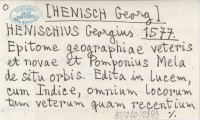 [HENISCH Georg]
HENISCHIUS Georgius. 1577.
Epitome geographiae veteris
et novae et Pomponius Mela
de situ orbis. Edita in lucem,
cum Indice, omnium locorum
tam veterum quam recentium